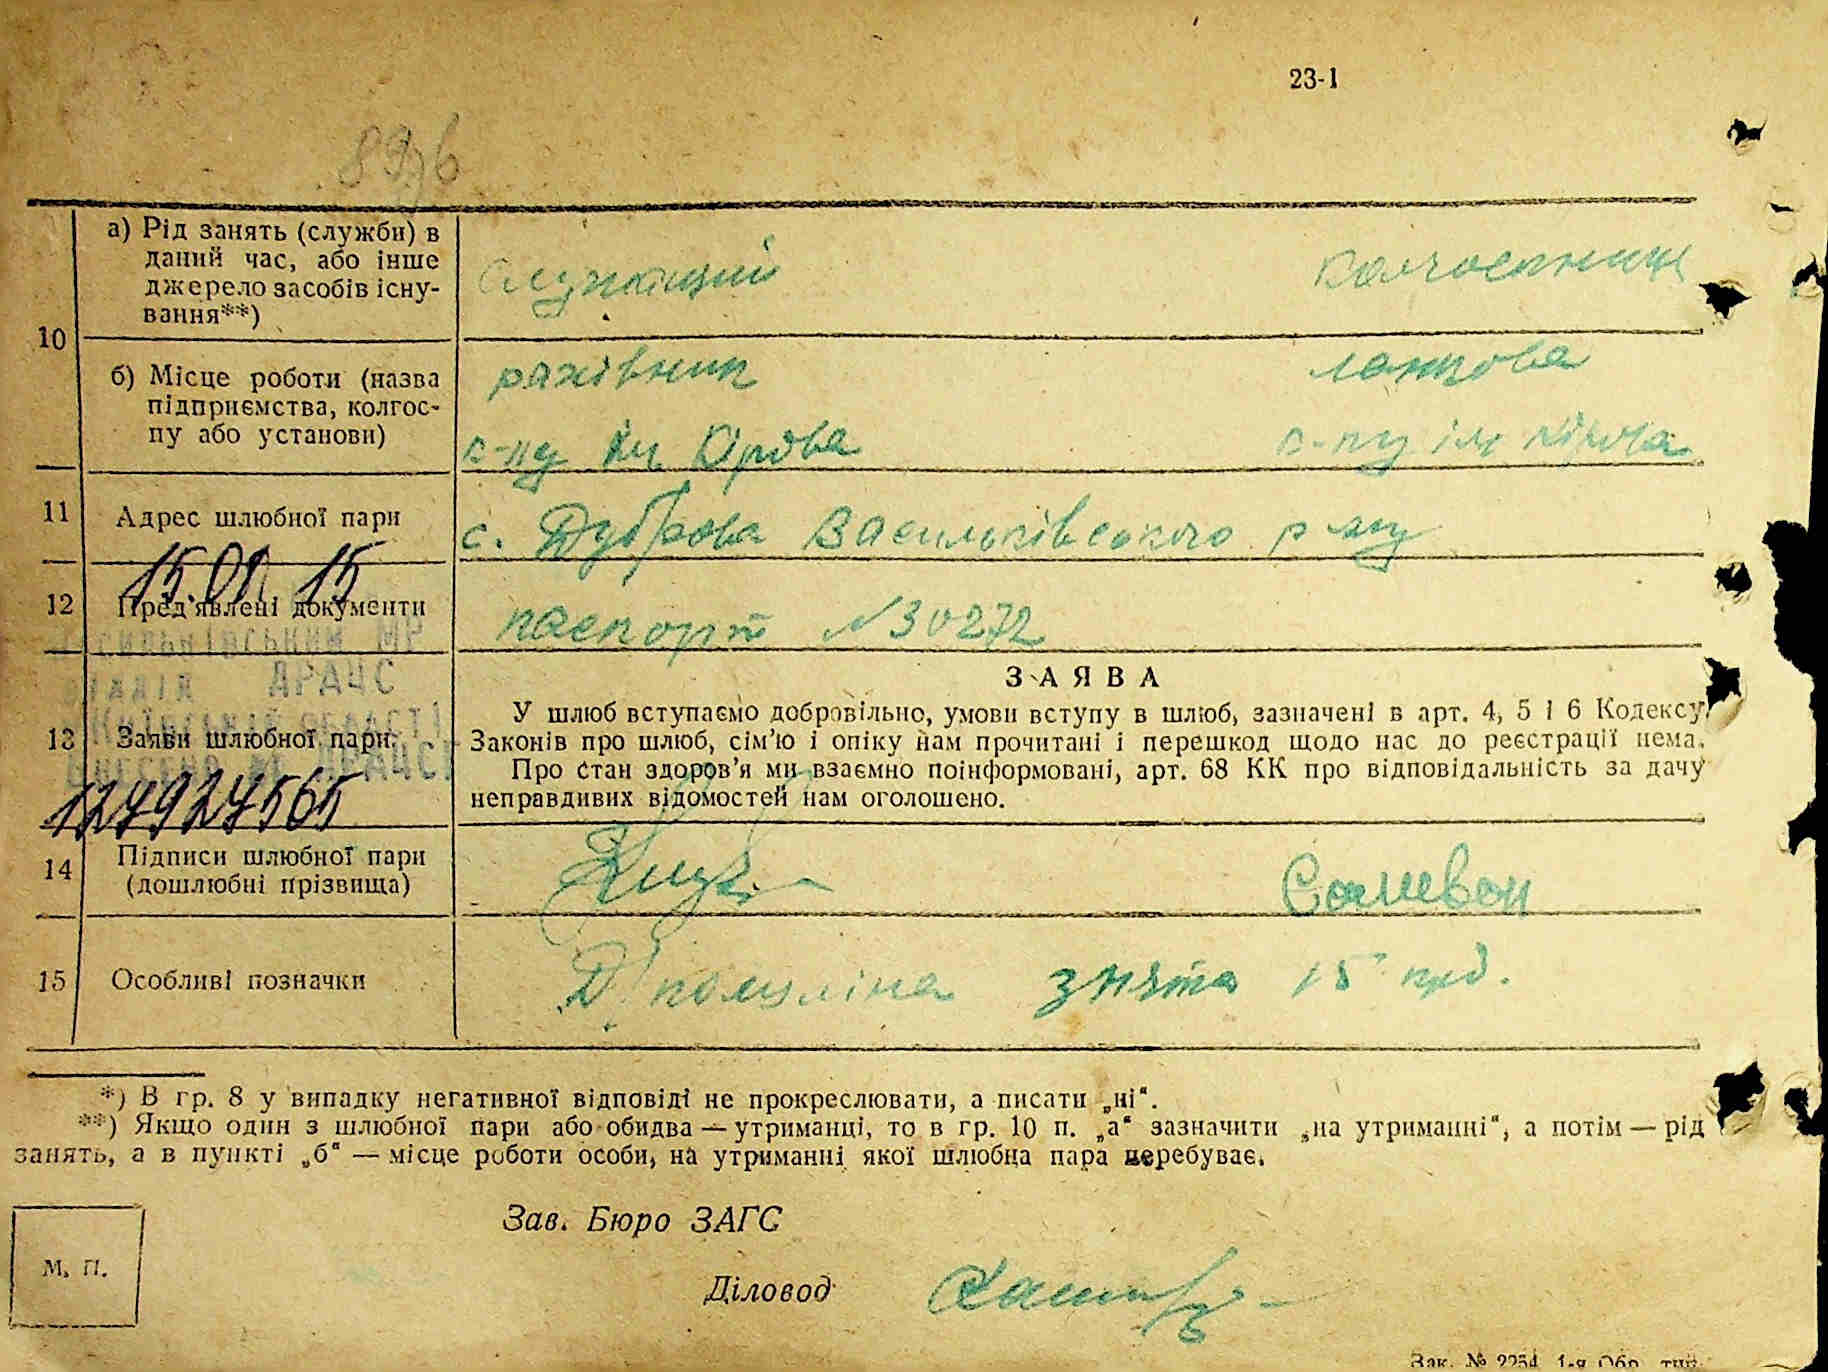 23-1
10
а) Рід занять (служби) в
даний час, або інше
джерело засобів існу-
вання**)
служащий
колгоспниця
б) Місце роботи (назва
підприємства, колгос-
пу або установи)
рахівник
ланкова
к-пу ім Кірова
к-пу ім Кірова
11
Адрес шлюбної пари
с. Дуброва Васильківського р-ну
15.01 15
12
Пред'явлені документи
паспорт №30272
Васильківський МР
відділ ДРАЦС
Київській області
13
Заяви шлюбної пари
ЗАЯВА
У шлюб вступаємо добровільно, умови вступу в шлюб, зазначені в арт. 4, 5 і 6 Кодексу
Законів про шлюб, сім'ю і опіку нам прочитані і перешкод щодо нас до реєстрації нема.
Про стан здоров'я ми взаємно поінформовані, арт. 68 КК про відповідальність за дачу
неправдивих відомостей нам оголошено.
ДРАЦС
14
Підписи шлюбної пари
(дошлюбні прізвища)
15
Особливі позначки
знята 15 крб.
*) В гр. 8 у випадку негативної відповіді не прокреслювати, а писати „ні“.
**) Якщо один з шлюбної пари або обидва — утриманці, то в гр. 10 п. „а“ зазначити „на утриманні“, а потім — рід
занять, а в пункті „б“ — місце роботи особи, на утриманні якої шлюбна пара перебуває.
Зав. Бюро ЗАГС
М. П.
Діловод
Зак. № 2254 1-я Обр. тип.